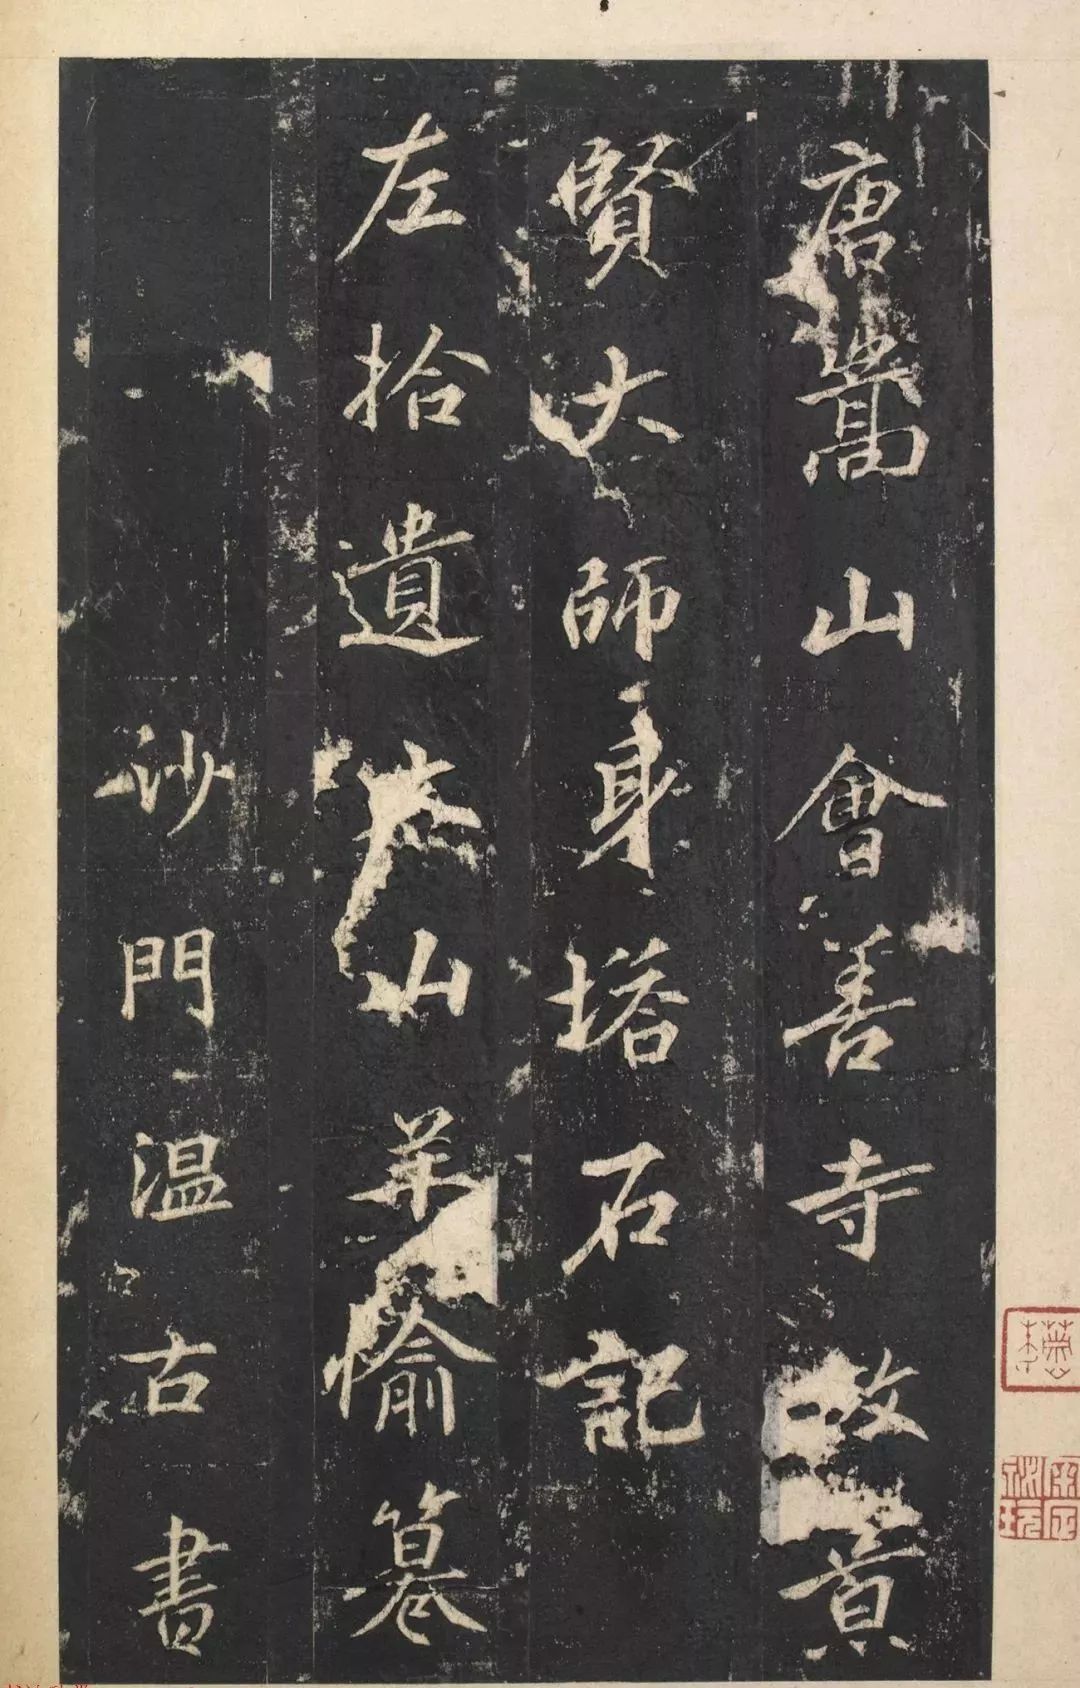 唐嵩山會善寺故景
賢大師身塔石記
左拾遺太山羊愉篹
沙門温古書